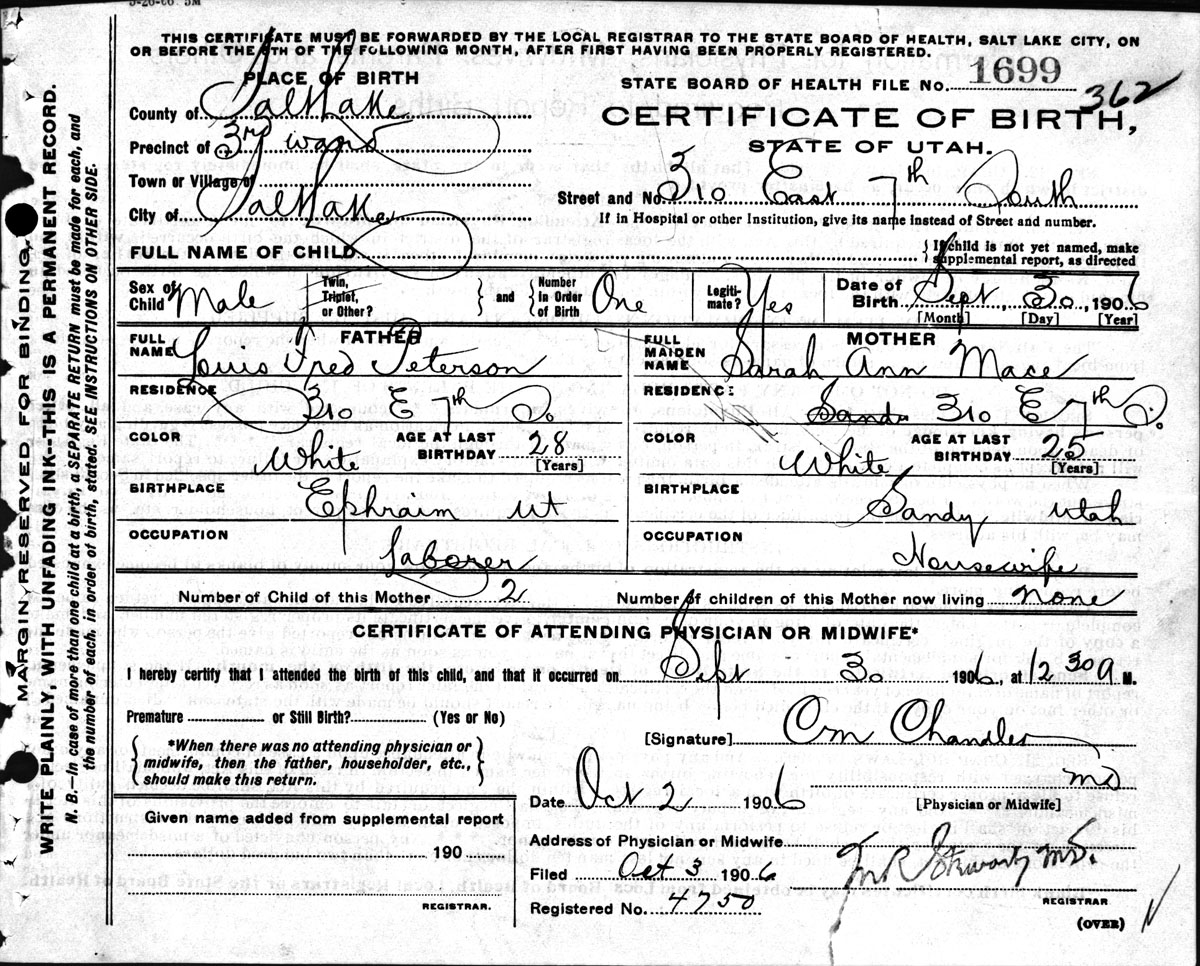 THIS CERTIFICATE MUST BE FORWARDED BY THE LOCAL REGISTRAR TO THE STATE BOARD OF HEALTH, SALT LAKE CITY, ON
OR BEFORE THE 5TH OF THE FOLLOWING MONTH, AFTER FIRST HAVING BEEN PROPERLY REGISTERED.
PLACE OF BIRTH
STATE BOARD OF HEALTH FILE No. 1699
362
County of Salt Lake
CERTIFICATE OF BIRTH,
Precinct of 3rd ward
STATE OF UTAH.
Town or Village of
Street and No. 310 East 7th South
City of Salt Lake
If in Hospital or other Institution, give its name instead of Street and number.
FULL NAME OF CHILD
If child is not yet named, make
supplemental report, as directed
Sex of Child Male
Twin, Triplet, or Other?
and
Number in Order of Birth One
Legiti-mate? Yes
Date of Birth Sept 30, 1906
[Month] [Day] [Year]
FATHER
FULL NAME Louis Fred Peterson
MOTHER
FULL MAIDEN NAME Sarah Ann Mace
RESIDENCE 310 E 7th So.
RESIDENCE Sand 310 E 7th So.
COLOR White
AGE AT LAST BIRTHDAY 28
[Years]
COLOR White
AGE AT LAST BIRTHDAY 25
[Years]
BIRTHPLACE Ephraim Ut
BIRTHPLACE Sandy Utah
OCCUPATION Laborer
OCCUPATION Housewife
Number of Child of this Mother 2
Number of children of this Mother now living none
CERTIFICATE OF ATTENDING PHYSICIAN OR MIDWIFE*
I hereby certify that I attended the birth of this child, and that it occurred on Sept 30 1906, at 12 30 a M.
Premature or Still Birth? (Yes or No)
[Signature] Chandler
MD
*When there was no attending physician or
midwife, then the father, householder, etc.,
should make this return.
Date Oct 2 1906
[Physician or Midwife]
Given name added from supplemental report
190
REGISTRAR.
Address of Physician or Midwife
Filed Oct 3 1906
M.D.
REGISTRAR
Registered No. 4750
(OVER)
MARGIN RESERVED FOR BINDING.
WRITE PLAINLY, WITH UNFADING INK--THIS IS A PERMANENT RECORD.
N. B.—In case of more than one child at a birth, a SEPARATE RETURN must be made for each, and
the number of each, in order of birth, stated. SEE INSTRUCTIONS ON OTHER SIDE.